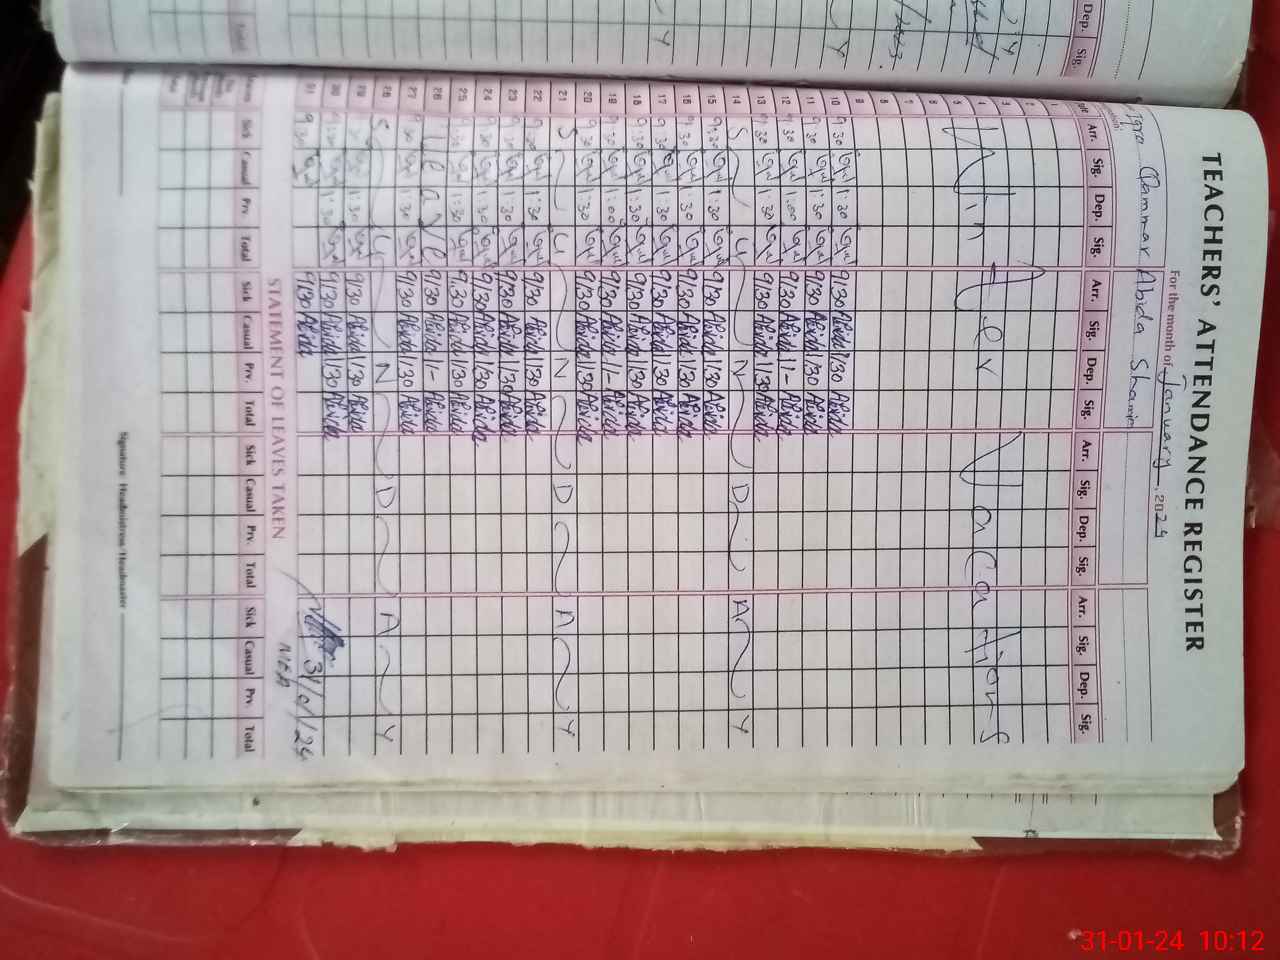 TEACHERS' ATTENDANCE REGISTER
For the month of January, 2024
Iqra Qammar Abida Shamim
Arr. Sig. Dep. Sig. Arr. Sig. Dep. Sig. Arr. Sig. Dep. Sig. Arr. Sig. Dep. Sig.
1
2
3
4 Winter Vacations
5
6
7
8
9
10 9:30 1:30 9:30 Abida 1:30 Abida
11 9:30 1:30 9:30 Abida 1:30 Abida
12 9:30 1:00 9:30 Abida 1- Abida
13 9:30 1:30 9:30 Abida 1:30 Abida
14 S U N D A Y
15 9:30 1:30 9:30 Abida 1:30 Abida
16 9:30 1:30 9:30 Abida 1:30 Abida
17 9:30 1:30 9:30 Abida 1:30 Abida
18 9:30 1:30 9:30 Abida 1:30 Abida
19 9:30 1:00 9:30 Abida 1- Abida
20 9:30 1:30 9:30 Abida 1:30 Abida
21 S U N D A Y
22 9:30 1:30 9:30 Abida 1:30 Abida
23 9:30 1:30 9:30 Abida 1:30 Abida
24 9:30 1:30 9:30 Abida 1:30 Abida
25 9:30 1:30 9:30 Abida 1:30 Abida
26 9:30 Abida 1- Abida
27 9:30 1:30 9:30 Abida 1:30 Abida
28 S U N D A Y
29 9:30 1:30 9:30 Abida 1:30 Abida
30 9:30 1:30 9:30 Abida 1:30 Abida
31 9:30 9:30 Abida
31/01/24
MEA
STATEMENT OF LEAVES TAKEN
Sick Casual Prv. Total Sick Casual Prv. Total Sick Casual Prv. Total Sick Casual Prv. Total
Signature Headmistress/Headmaster
31-01-24 10:12